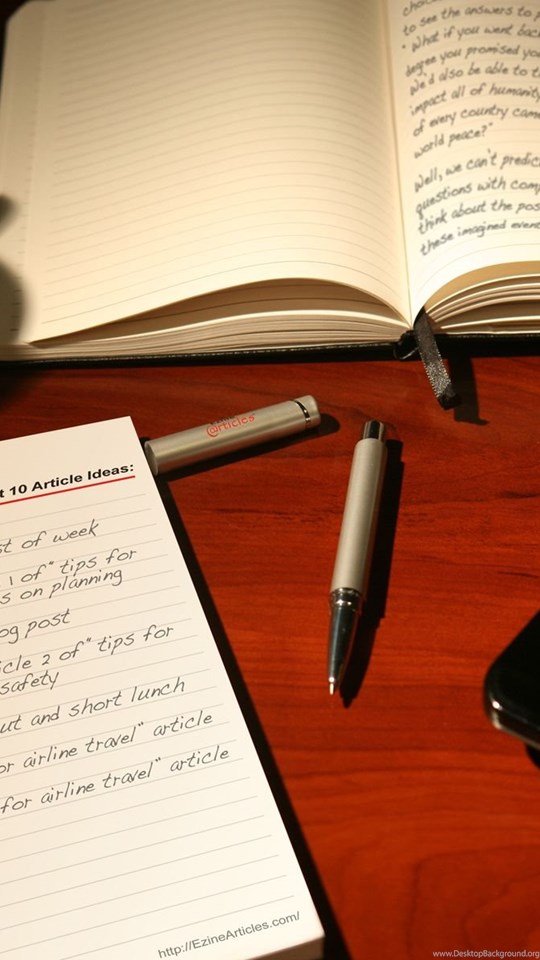 to see the answers to
"What if you went bac
degree you promised yo
We'd also be able to t
impact all of humanity
of every country came
world peace?"
Well, we can't predic
questions with com
think about the pos
these imagined even
@rticles
t 10 Article Ideas:
st of week
1 of" tips for
s on planning
og post
icle 2 of" tips for
safety
ut and short lunch
or airline travel" article
for airline travel" article
http://EzineArticles.com/
www.DesktopBackground.org